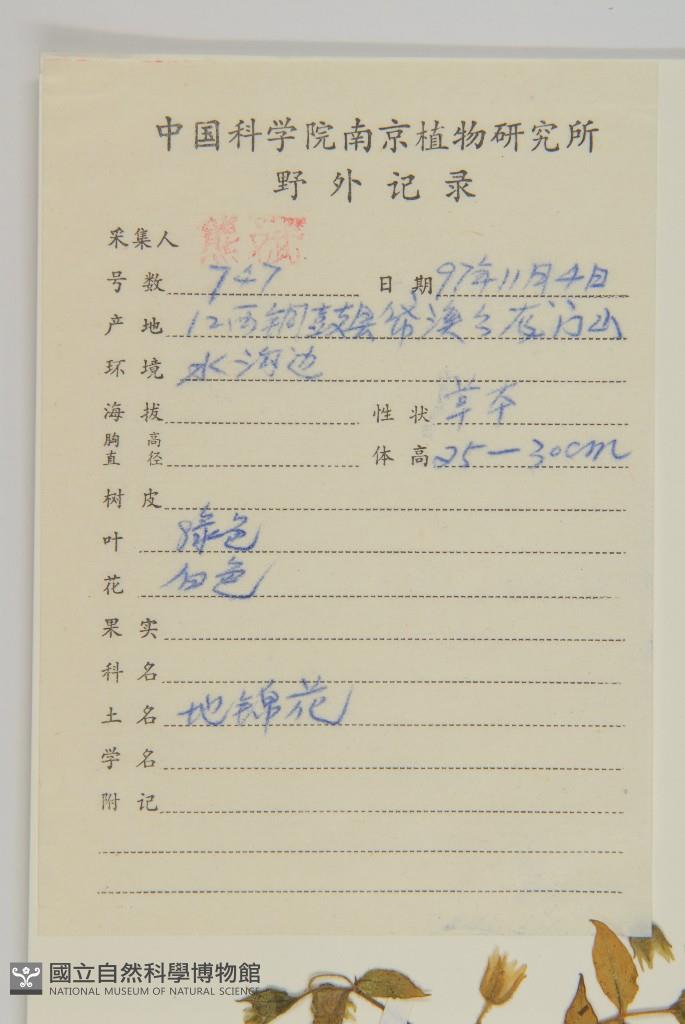 中国科学院南京植物研究所
野外记录
采集人 熊
号数 747 日期 97年11月4日
产地 江西铜鼓县 溪
环境 水沟边
海拔 性状 草本
胸高直径 体高 25—30cm
树皮
叶 绿色
花 白色
果实
科名
土名 地锦花
学名
附记
國立自然科學博物館
NATIONAL MUSEUM OF NATURAL SCIENCE